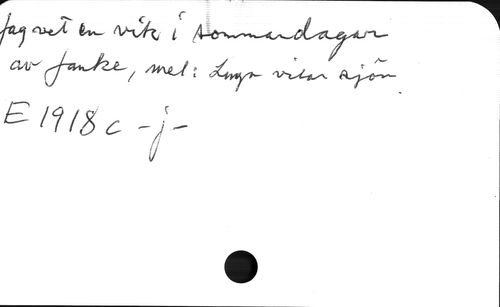 Jag vet en vik i sommardagar
av Janke, mel: Lugn vilar sjön
E 1918 c -j-